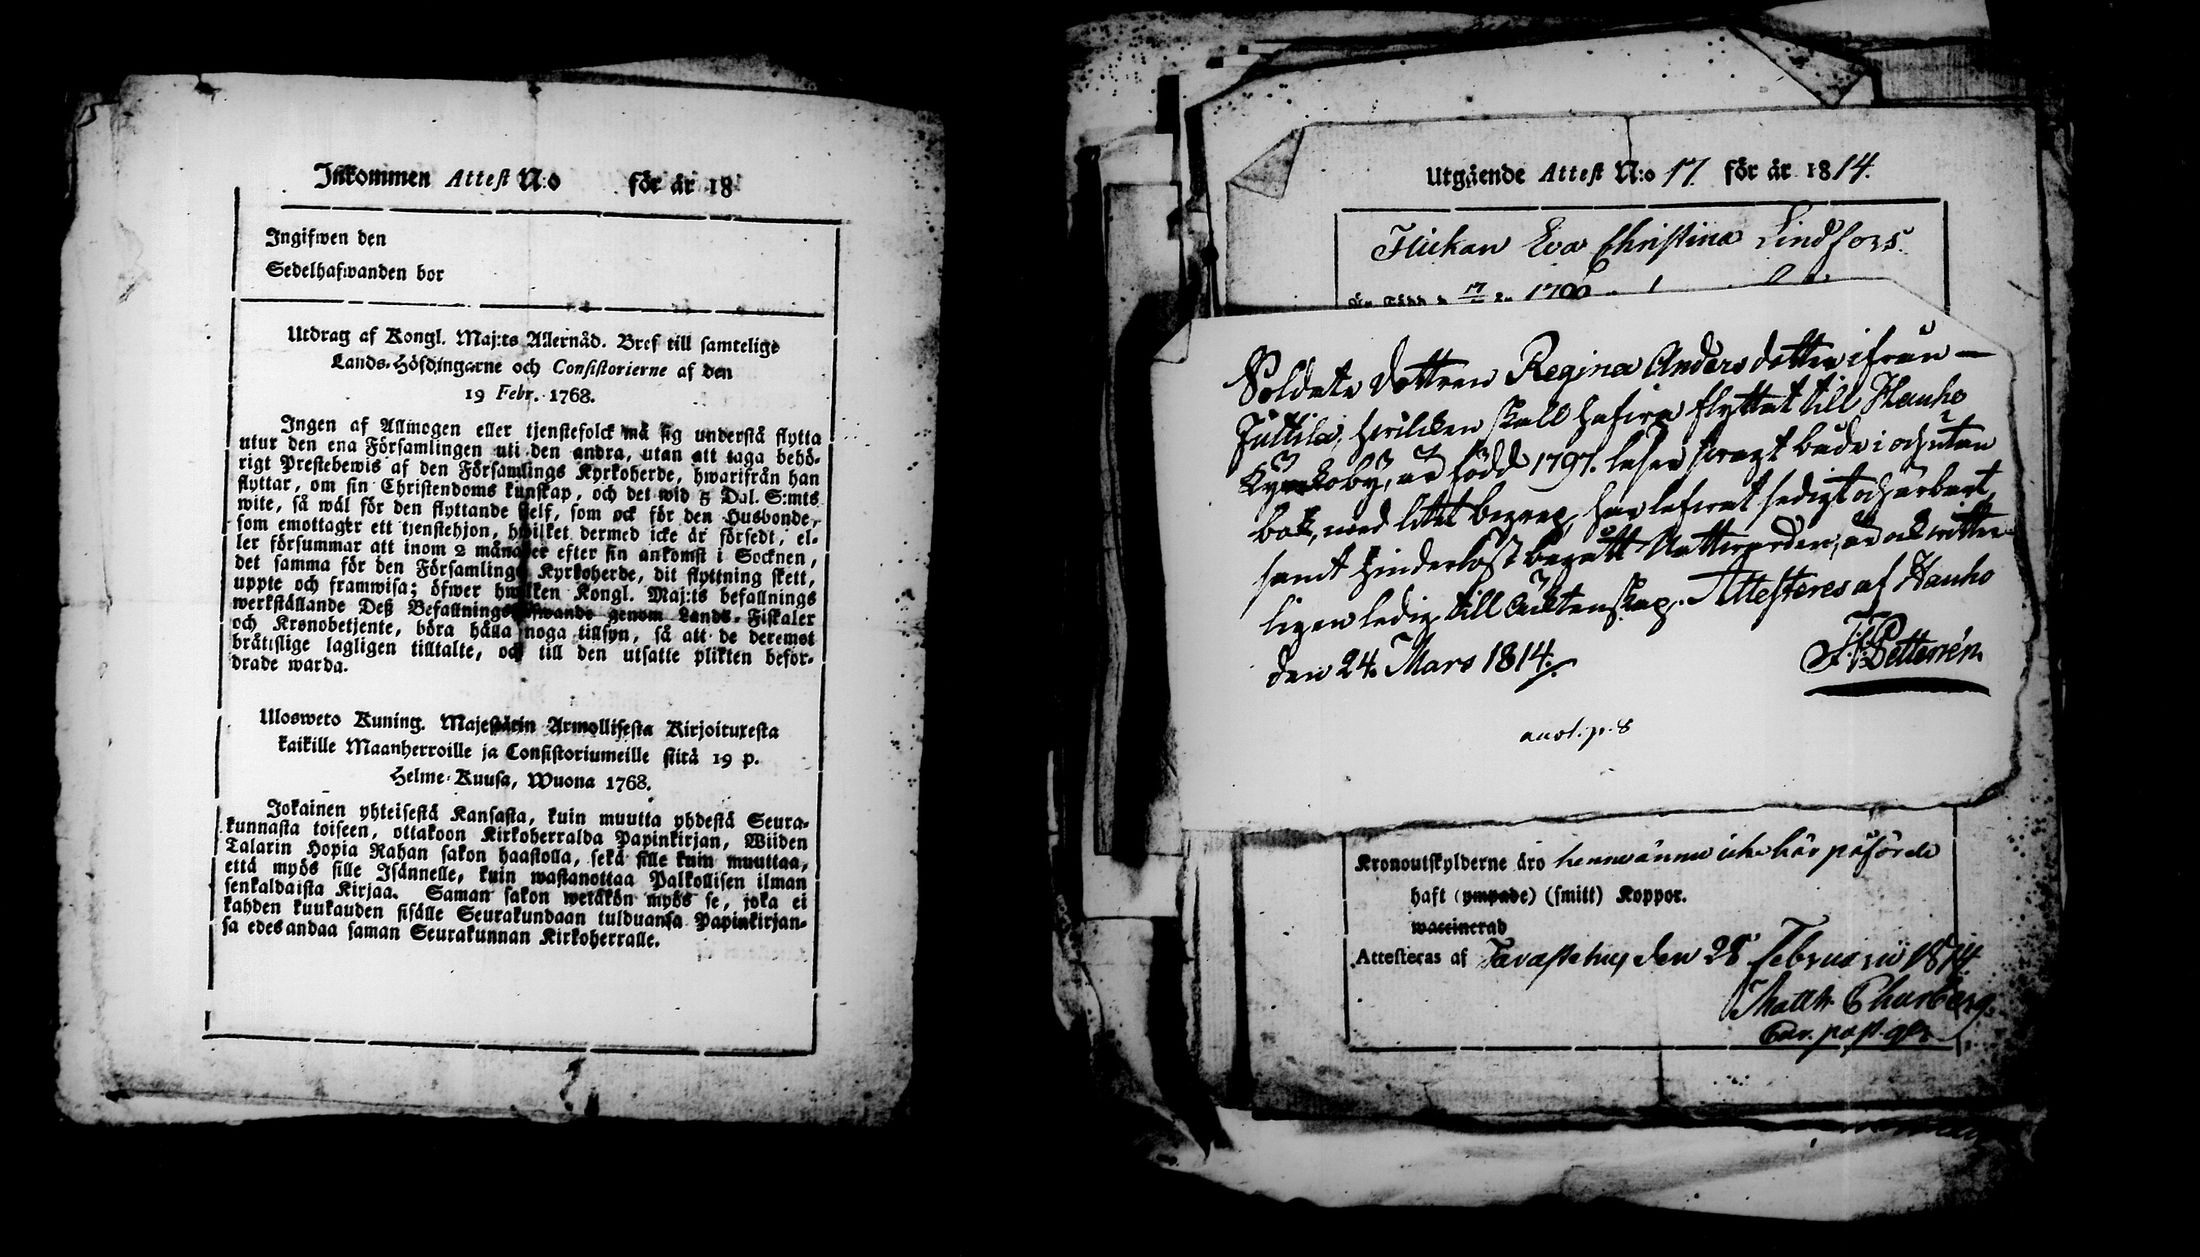 Inkommen Attest N:o för år 18
Ingifwen den
Sedelhafwanden bor
Utdrag af Kongl. Maj:ts Allernåd. Bref till samtelige
Lands-Höfdingarne och Consistorierne af den
19 Febr. 1768.
Ingen af Allmogen eller tjenstefolck må sig understå flytta
utur den ena Församlingen uti den andra, utan att taga behö-
rigt Prestebewis af den Församlings Kyrkoherde, hwarifrån han
flyttar, om sin Christendoms kunskap, och det wid 5 Dal. S:mts
wite, så wäl för den flyttande self, som ock för den Husbonde,
som emottager ett tjenstehjon, hwilket dermed icke är försedt, el-
ler försummar att inom 2 månader efter sin ankomst i Socknen,
det samma för den Församlings Kyrkoherde, dit flyttning skett,
uppte och framwisa; öfwer hwilken Kongl. Maj:ts befallnings
werkställande Deß Befallningshafwande genom Lands-Fiskaler
och Kronobetjente, böra hålla noga tillsyn, så att de deremot
bråttslige lagligen tilltalte, och till den utsatte plikten befor-
drade warda.
Ulosweto Kuning. Majestätin Armollisesta Kirjoituxesta
kaikille Maanherroille ja Consistoriumeille siitä 19 p.
Helme-Kuusa, Wuona 1768.
Jokainen yhteisestä Kansasta, kuin muutta yhdestä Seura-
kunnasta toiseen, ottakoon Kirkoherralda Papinkirjan, Wiiden
Talarin Hopia Rahan sakon haastolla, sekä sille kuin muuttaa,
että myös sille Isännelle, kuin wastanottaa Palkollisen ilman
senkaldaista Kirjaa. Saman sakon wetäkön myös se, joka ei
kahden kuukauden sisälle Seurakundaan tulduansa Papinkirjan-
sa edesandaa saman Seurakunnan Kirkoherralle.
Utgående Attest N:o 17. för år 1814.
Flickan Eva Christina Lindfors.
Är född d. 17 1790
Soldats dottren Regina Anders dotter ifrån —
Juttila, hvilcken skall hafva flyttat till Hauho
Kyrckoby, är född 1797. läser svagt både i och utan
bok, med litet begrep, har lefvat sedigt och ärbart,
samt hinderlöst begått Nattvarden; är ock vitter-
ligen ledig till äcktenskap. Attesteres af Hauho
den 24. Mars 1814.
Petterrén
anot. p. 8
Kronoutskylderne äro hennes ännu icke här påförde
haft (ympade) (smitt) Koppor.
waccinerad
Attesteras af Tavastehus den 28 Februarii 1814
Matth Churberg
past.